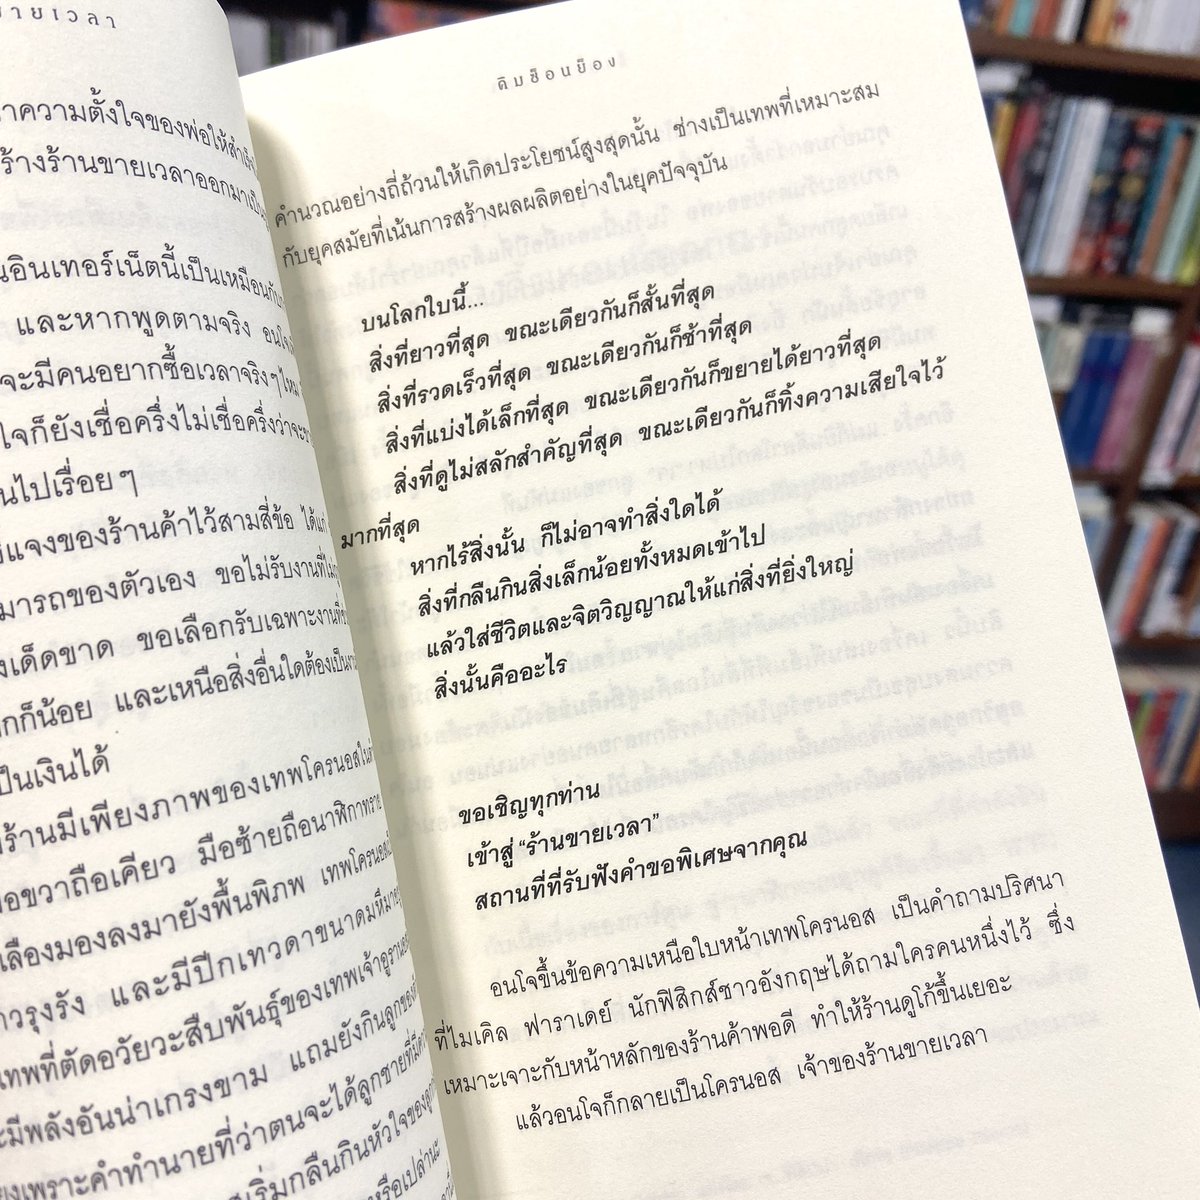 ายเวลา
าความตั้งใจของพ่อให้สำเร็จ
ร้างร้านขายเวลาออกมาเป็น
นอินเทอร์เน็ตนี้เป็นเหมือนกับ
และหากพูดตามจริง อนโจ
จะมีคนอยากซื้อเวลาจริงๆ ไหม
ใจก็ยังเชื่อครึ่งไม่เชื่อครึ่งว่าจะ
นไปเรื่อยๆ
แจงของร้านค้าไว้สามสี่ข้อ ได้แก่
มารถของตัวเอง ขอไม่รับงานที่ไม่
งเด็ดขาด ขอเลือกรับเฉพาะงานที่
กก็น้อย และเหนือสิ่งอื่นใดต้องเป็น
ป็นเงินได้
ร้านมีเพียงภาพของเทพโครนอสใน
อขวาถือเคียว มือซ้ายถือนาฬิกาทราย
เลืองมองลงมายังพื้นพิภพ เทพโครนอส
าวรุงรัง และมีปีกเทวดาขนาดมหึมา
เทพที่ตัดอวัยวะสืบพันธุ์ของเทพเจ้าอูรานอส
ะมีพลังอันน่าเกรงขาม แถมยังกินลูกของ
งเพราะคำทำนายที่ว่าตนจะได้ลูกชายที่มี
ริ่มกลืนกินหัวใจของ
หรือเปล่านะ
คิมซ็อนย็อง
คำนวณอย่างถี่ถ้วนให้เกิดประโยชน์สูงสุดนั้น ช่างเป็นเทพที่เหมาะสม
กับยุคสมัยที่เน้นการสร้างผลผลิตอย่างในยุคปัจจุบัน
บนโลกใบนี้...
สิ่งที่ยาวที่สุด ขณะเดียวกันก็สั้นที่สุด
สิ่งที่รวดเร็วที่สุด ขณะเดียวกันก็ช้าที่สุด
สิ่งที่แบ่งได้เล็กที่สุด ขณะเดียวกันก็ขยายได้ยาวที่สุด
สิ่งที่ดูไม่สลักสำคัญที่สุด ขณะเดียวกันก็ทิ้งความเสียใจไว้
มากที่สุด
หากไร้สิ่งนั้น ก็ไม่อาจทำสิ่งใดได้
สิ่งที่กลืนกินสิ่งเล็กน้อยทั้งหมดเข้าไป
แล้วใส่ชีวิตและจิตวิญญาณให้แก่สิ่งที่ยิ่งใหญ่
สิ่งนั้นคืออะไร
ขอเชิญทุกท่าน
เข้าสู่ “ร้านขายเวลา”
สถานที่ที่รับฟังคำขอพิเศษจากคุณ
อนโจขึ้นข้อความเหนือใบหน้าเทพโครนอส เป็นคำถามปริศนา
ที่ไมเคิล ฟาราเดย์ นักฟิสิกส์ชาวอังกฤษได้ถามใครคนหนึ่งไว้ ซึ่ง
เหมาะเจาะกับหน้าหลักของร้านค้าพอดี ทำให้ร้านดูโก้ขึ้นเยอะ
แล้วอนโจก็กลายเป็นโครนอส เจ้าของร้านขายเวลา